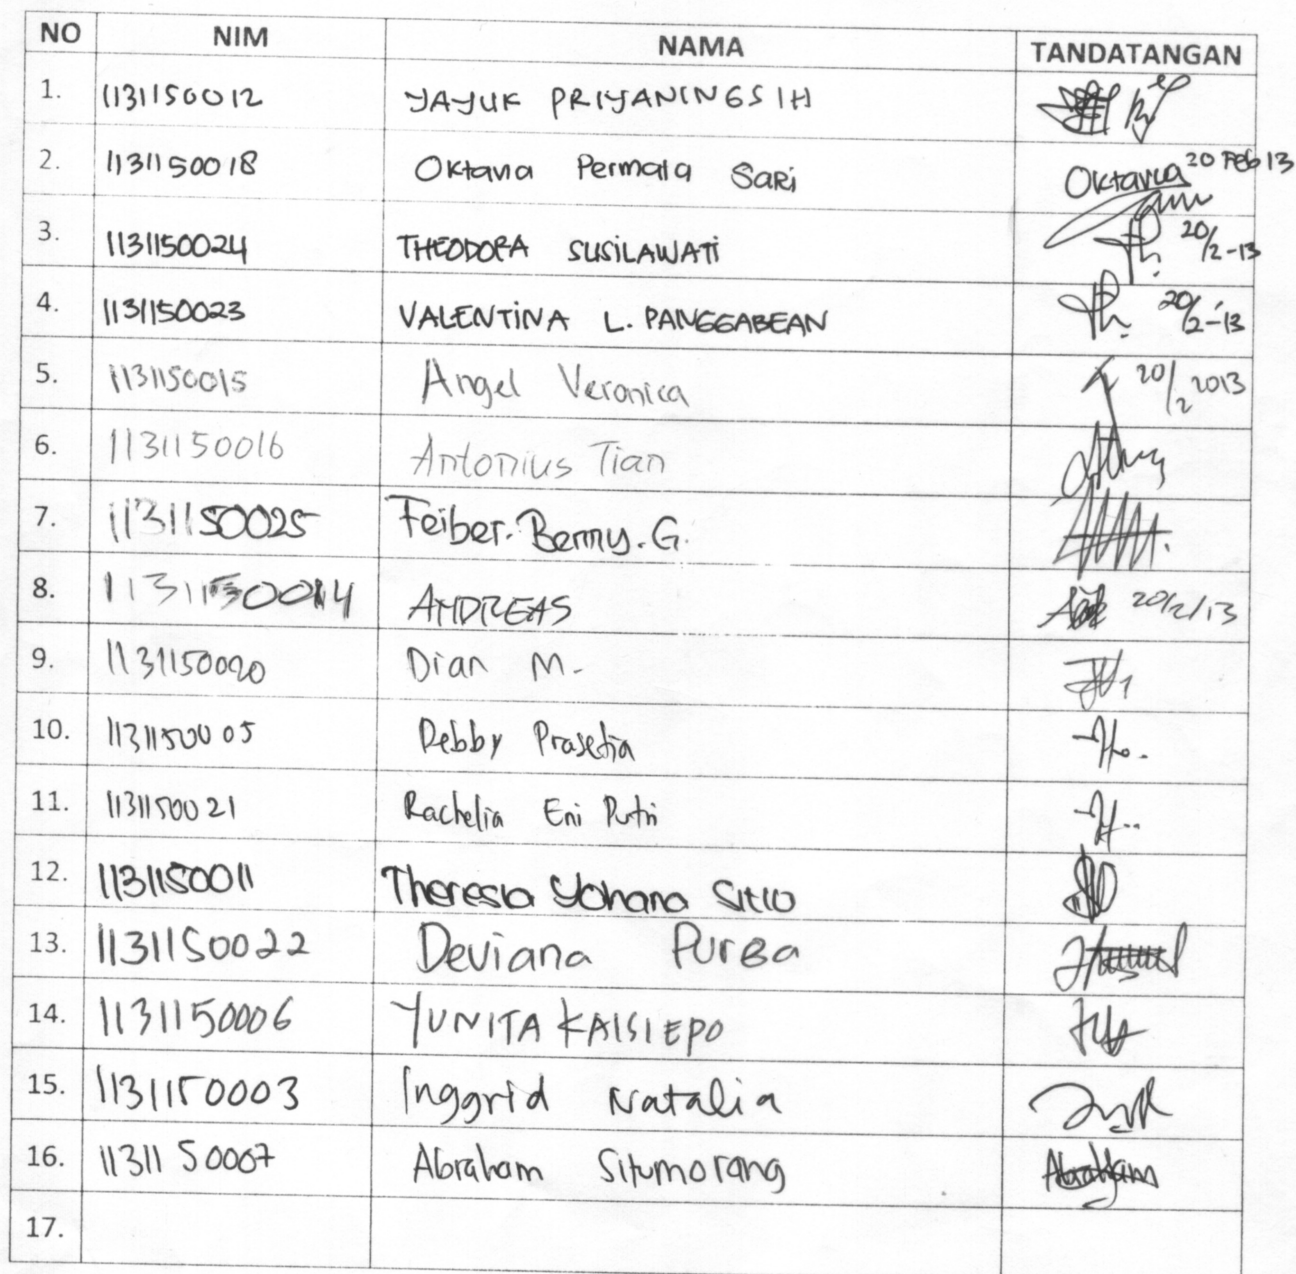 NO NIM NAMA TANDATANGAN
1. 1131150012 YAYUK PRIYANINGSIH
2. 1131150018 Oktavia Permata Sari Oktavia 20 Feb 13
3. 1131150024 THEODORA SUSILAWATI 20/2-13
4. 1131150023 VALENTINA L. PANGGABEAN 20/2-13
5. 1131150015 Angel Veronica 20/2 2013
6. 1131150016 Antonius Tian
7. 1131150025 Feiber. Benny. G.
8. 1131150014 ANDREAS 20/2/13
9. 1131150020 Dian M.
10. 1131150005 Debby Prasetia
11. 1131150021 Rachelia Eni Putri
12. 1131150011 Theresia Yohana Sitio
13. 1131150022 Deviana Purba
14. 1131150006 YUNITA KAISIEPO
15. 1131150003 Inggrid Natalia
16. 1131150007 Abraham Situmorang Abraham
17.